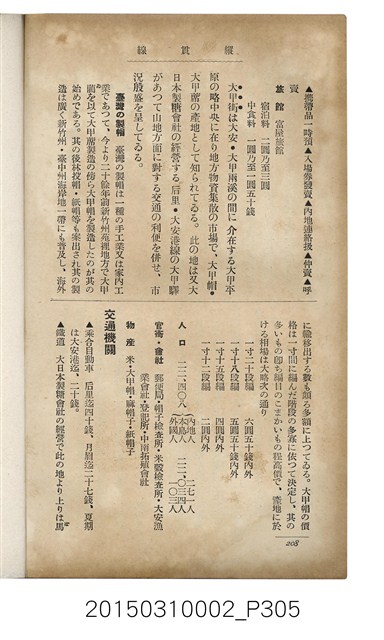 縱貫線
▲携帶品一時預▲入場券發賣▲內地連絡扱▲他賣▲呼
賣
旅館 富屋旅館
宿泊料 二圓乃至三圓
中食料 一圓乃至一圓五十錢
大甲街は大安・大甲兩溪の間に介在する大甲平
原の略中央に在り地方物資集散の市場で、大甲帽・
大甲蓆の產地として知られてゐる。此の地は又大
日本製糖會社の經營する后里・大安港線の大甲驛
があつて山地方面に對する交通の利便を併せ、市
況殷盛を呈してゐる。
臺灣の製帽 臺灣の製帽は一種の手工業又は家內工
業であつて、今より二十餘年前新竹州苑裡地方で大甲
藺を以て大甲蓆製造の傍ら大甲帽を製造したのが其の
始めである。其の後林投帽・紙帽等も案出され其の製
造は廣く新竹州・臺中州海岸地一帶にも普及し、海外
208
に輸移出する數も頗る多額に上つてゐる。大甲帽の價
格は一寸間に編んだ階段の多寡に依つて決定し、其の
多いもの卽ち編目のこまかいもの程高價で、產地に於
ける相場は大略次の通り
一寸二十段編 六圓五十錢內外
一寸十八段編 五圓五十錢內外
一寸十五段編 四圓內外
一寸十二段編 二圓內外
人口 二二、四〇八
內地人 二七一人
本島人 二二、〇三四人
外國人 一〇三人
官衙・會社 郵便局・帽子檢查所・米穀檢查所・大安漁
業會社・登記所・中南拓殖會社
物產 米・大甲帽・麻帽子・紙帽子
交通機關
▲乘合自動車 后里迄四十錢、月眉迄二十七錢、夏期
は大安港迄、二十錢
▲鐵道 大日本製糖會社の經營で此の地より上りは馬
20150310002_P305